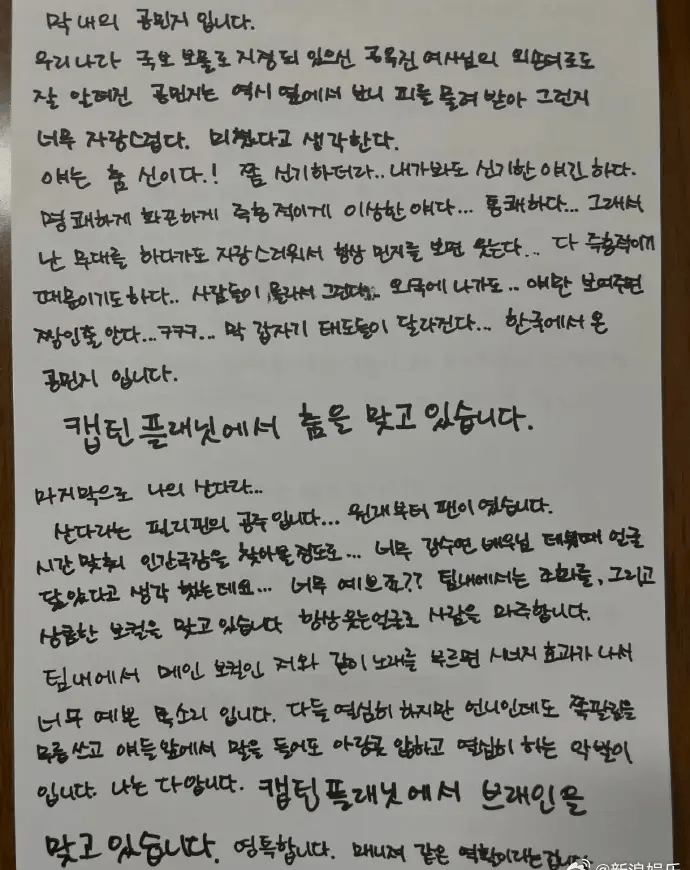 막내의 공민지 입니다.
우리나라 국보 보물로 지정되 있으신 공옥진 여사님의 외손녀로도
잘 알려진 공민지는 역시 옆에서 보니 피를 물려 받아 그런지
너무 자랑스럽다. 미쳤다고 생각한다.
얘는 춤 신이다.! 쫌 신기하더라.. 내가봐도 신기한 얘긴 하다.
명쾌하게 화끈하게 즉흥적이게 이상한 얘다... 통쾌하다... 그래서
난 무대를 하다가도 자랑스러워서 항상 민지를 보면 웃는다... 다 즉흥적이기
때문이기도 하다.. 사람들이 몰라서 그런다.. 외국에 나가도.. 얘만 보여주면
짱인줄 안다...ㅋㅋㅋ... 막 갑자기 태도들이 달라진다... 한국에서 온
공민지 입니다.
캡틴 플래닛에서 춤을 맞고 있습니다.
마지막으로 나의 산다라...
산다라는 필리핀의 공주입니다... 원래부터 팬이였습니다.
시간 맞춰 인간극장을 찾아볼 정도로... 너무 강수연 배우님 데뷔때 얼굴
닮았다고 생각 했는데요... 너무 예쁘죠?? 팀내에서는 조화를, 그리고
상큼한 보컬을 맞고 있습니다 항상 웃는 얼굴로 사람을 마주합니다.
팀내에서 메인 보컬인 저와 같이 노래를 부르면 시너지 효과가 나서
너무 예쁜 목소리 입니다. 다들 열심히 하지만 언니인데도 쪽팔림을
무릅쓰고 얘들앞에서 말을 들어도 아랑곳 않하고 열심히 하는 악발이
입니다. 나는 다 압니다. 캡틴플래닛에서 브레인을
맞고 있습니다. 영특합니다. 매니져 같은 역확이라는겁니다.
@新浪娱乐